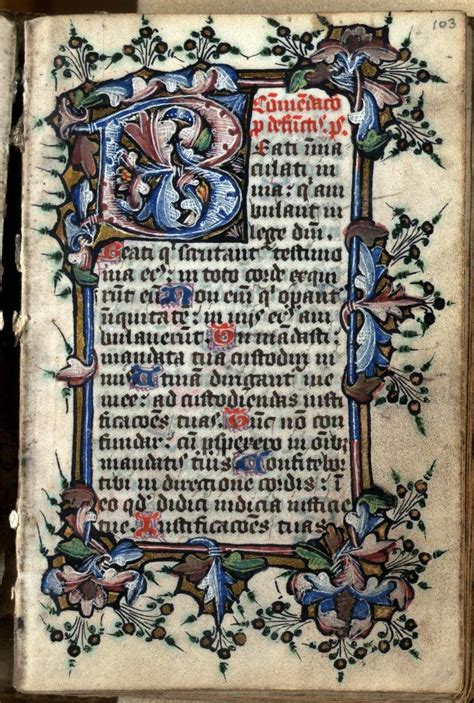 103
Cōmendacō
p defūctis ps
Beati īma
culati in
uia: q' am
bulant in
lege dnī.
Beati q' scrutant testimo
nia eꝰ: in toto corde exqui
rūt eū Non eni q' opant
iniquitate: in uiis eꝰ am
bulauerūt Tu mandasti:
mandata tua custodiri ni
mis Utinā dirigant uie
mee: ad custodiendas iustifi
ficacoēs tuas Tūc non con
fundar: cū pspexero in oībꝫ
mandatis tuis Confitebor
tibi in directione cordis: ī
eo qd' didici iudicia iusticie
tue Iustificacoēs tuas